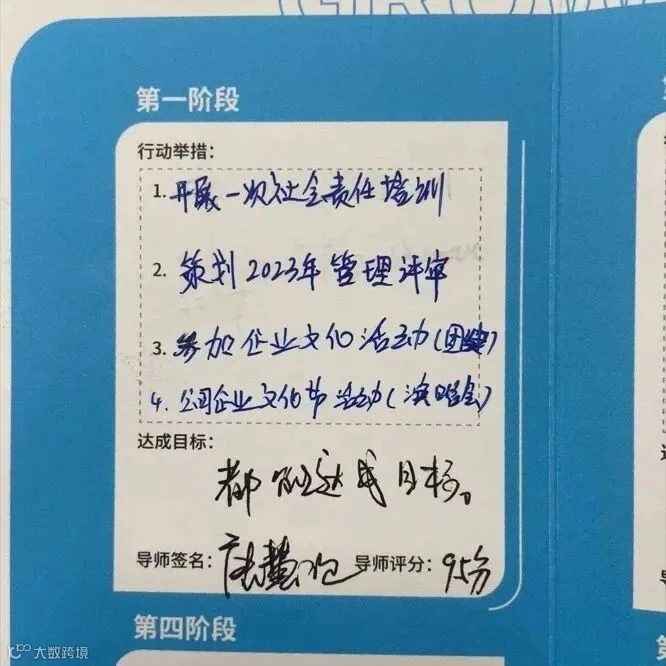 第一阶段
行动举措：
1. 开展一次社会责任培训
2. 策划2023年管理评审
3. 参加企业文化活动(团建)
4. 公司企业文化节活动(演唱会)
达成目标：
都能达成目标。
导师签名： 导师评分：95分
第四阶段
大数跨境